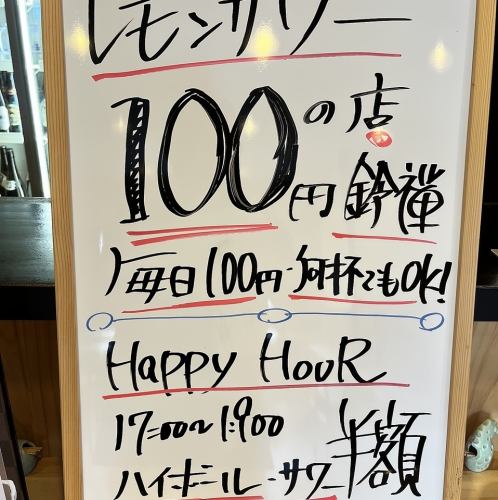 レモンサワー
100円の店 鈴禅
毎日100円・何杯でもOK!
Happy HouR
17:00〜1:900 半額
ハイボール・サワー